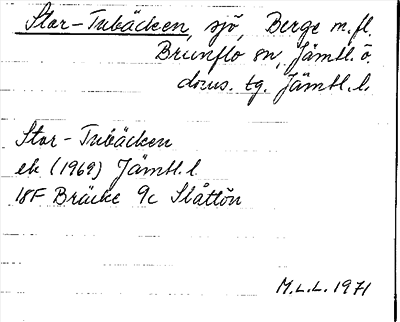 Stor-Tubäcken, sjö, Berge m.fl.
Brunflo sn, Jämtl. ö.
doms. tg. Jämtl. l.
Stor-Tubäcken
ek (1969) Jämtl. l.
18F Bräcke 9c Slåttön
M.L.L. 1971